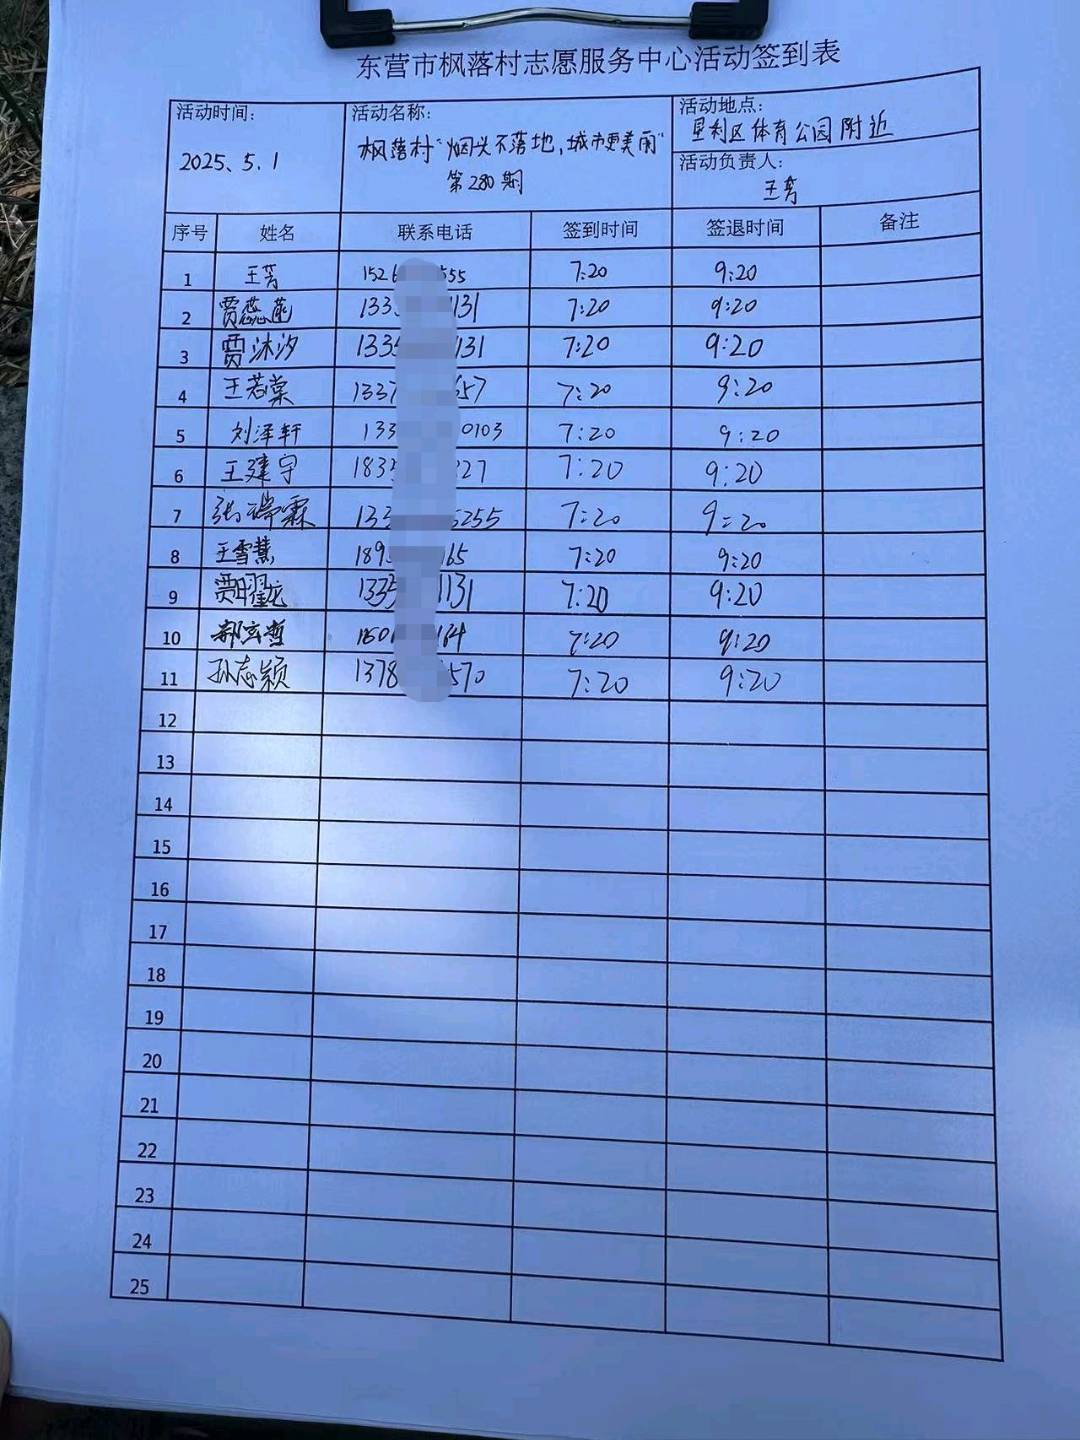 东营市枫落村志愿服务中心活动签到表
活动时间: 2025、5.1
活动名称: 枫落村“烟头不落地,城市更美丽” 第280期
活动地点: 垦利区体育公园附近
活动负责人: 王芳
序号 姓名 联系电话 签到时间 签退时间 备注
1 王芳 1526 555 7:20 9:20
2 贾蕊菡 133 1131 7:20 9:20
3 贾沐汐 1335 131 7:20 9:20
4 王若棠 1337 657 7:20 9:20
5 刘泽轩 133 0103 7:20 9:20
6 王建宇 1835 227 7:20 9:20
7 张瑞霖 133 5255 7:20 9:20
8 王雪慧 1895 165 7:20 9:20
9 贾曜龙 1335 1131 7:20 9:20
10 郝玄哲 1506 164 7:20 9:20
11 孙志颖 1378 570 7:20 9:20
12
13
14
15
16
17
18
19
20
21
22
23
24
25